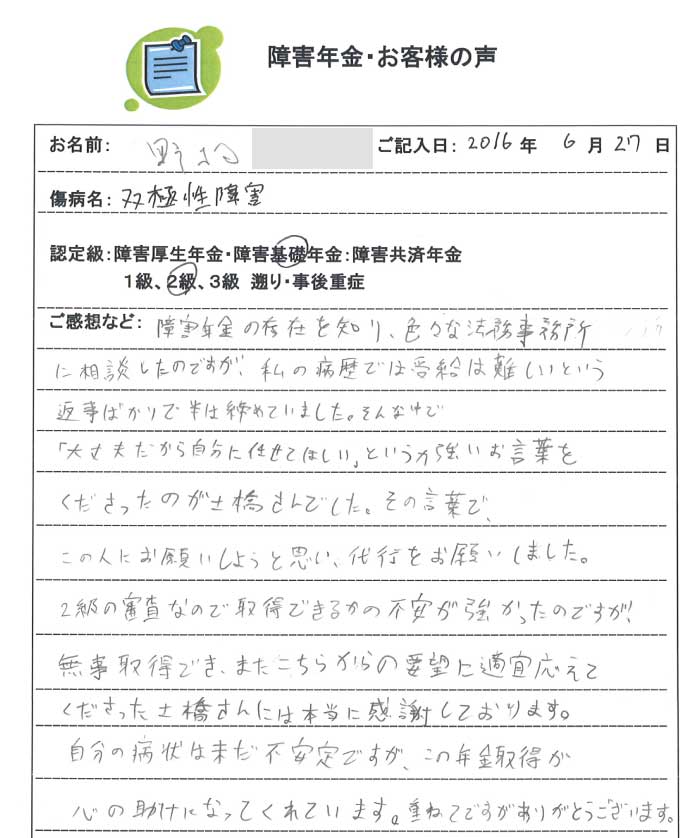 障害年金・お客様の声
お名前： ご記入日：2016年 6月27日
傷病名：双極性障害
認定級：障害厚生年金・障害基礎年金：障害共済年金
1級、2級、3級 遡り・事後重症
ご感想など：障害年金の存在を知り、色々な法務事務所
に相談したのですが、私の病歴では受給は難しいという
返事ばかりで半は締めていました。そんな中で
「大丈夫だから自分に任せてほしい」という力強いお言葉を
くださったのが土橋さんでした。その言葉で、
この人にお願いしようと思い、代行をお願いしました。
2級の審査なので取得できるかの不安が強かったのですが、
無事取得でき、またこちらからの要望に適宜応えて
くださった土橋さんには本当に感謝しております。
自分の病状は未だ不安定ですが、この年金取得が
心の助けになってくれています。重ねてですがありがとうございます。